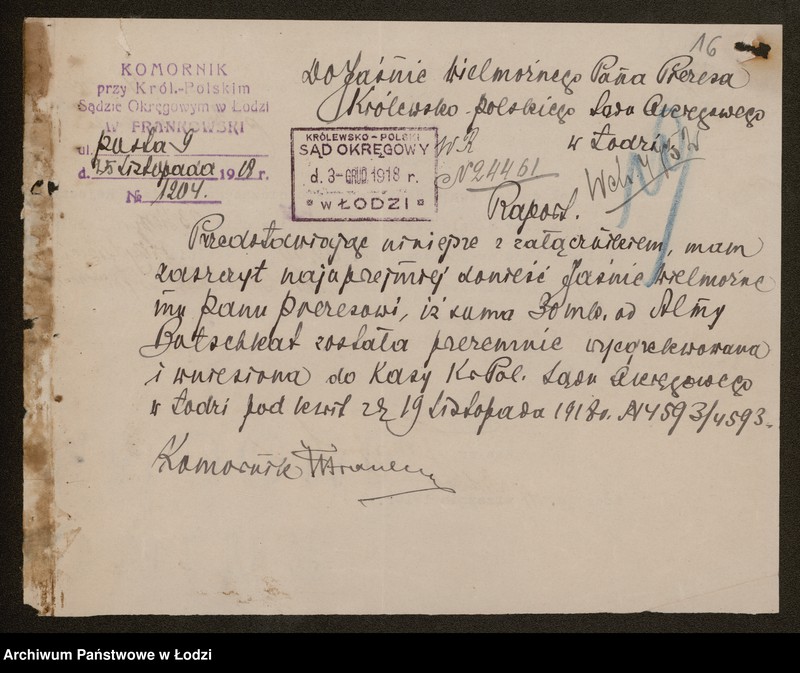 16
KOMORNIK
przy Król.-Polskim
Sądzie Okręgowym w Łodzi
W FRANKOWSKI
ul. Pusta 9
d. 25 Listopada 1918 r.
№ 1204.
Do Jaśnie Wielmożnego Pana Prezesa
Królewsko-polskiego Sądu Okręgowego
w Łodzi
KRÓLEWSKO-POLSKI
SĄD OKRĘGOWY
d. 3-GRUD 1918 r.
* w ŁODZI *
N 24461
Raport.
Przedstawiając niniejsze z załącznikiem, mam
zaszczyt najuprzejmiej donieść Jaśnie Wielmożne
mu Panu Prezesowi, iż suma 30 mk. od Almy
Botschkat została przezemnie wyegzekwowana
i wniesiona do Kasy Kr Pol. Sądu Okręgowego
w Łodzi pod kwit z d. 19 Listopada 1918 r. N 4593/4593.
Komornik
Archiwum Państwowe w Łodzi